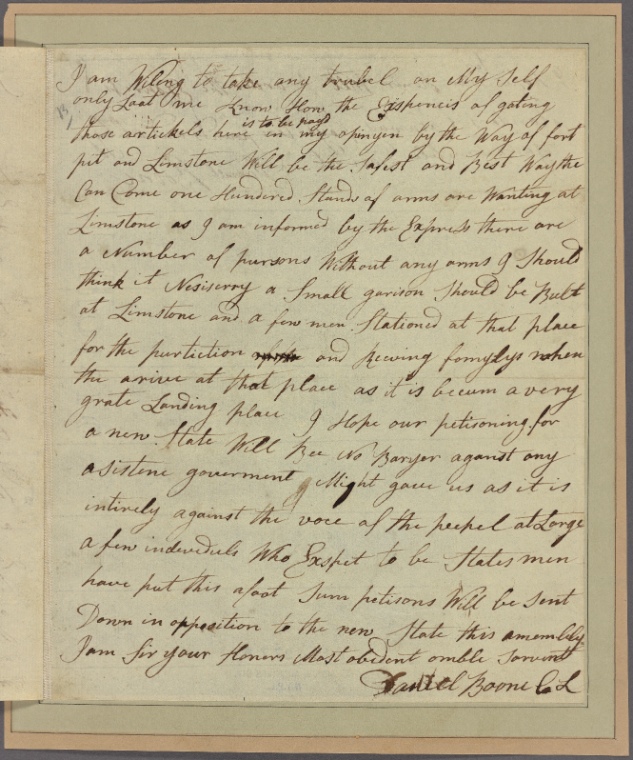 I am Wiling to take any trubel on My Self
only Laat me Know How the Exspencis of gating
is to be payd
those airtickels here in my opinyen by the Way of fort
pit and Limstone Will be the Safest and Best Way the
Can Come one Hundred Stands of arms are Wanting at
Limstone as I am informed by the Express there are
a Number of pursons Without any arms I Should
think it Nesiserry a Small garison Should be Built
at Limstone and a few men Stationed at that place
for the purtiction and Reciving fomylys when
the arive at that place as it is becum a very
grate Landing place I Hope our petisoning for
a new State Will Bee No Baryer against any
asistene goverment Might gave us as it is
intirely against the voce of the peepel at Lorge
a few indevediels Who Exspet to be States men
have put this afoot Sum petisons Will be Sent
Down in opposition to the new State this amembly
I am Sir your Honers Most obedent omble Sarvent
Daniel Boone C L